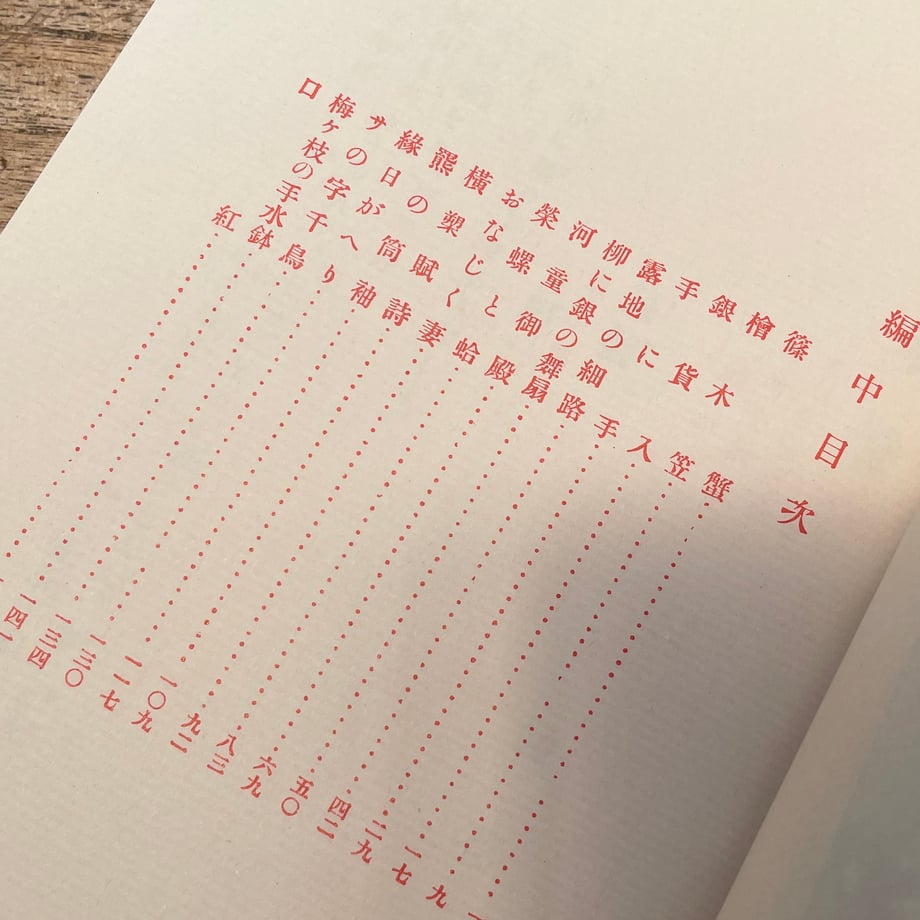 編中目次
篠蟹……一
檜木笠……九
銀貨入……一七
手に手……二九
露地の細路……四二
柳に銀の舞扇……五〇
河童御殿……六九
榮螺と蛤……八三
おなじく妻……九二
横槊賦詩……一〇九
羆の筒袖……一一七
緣日がへり……一三〇
サの字千鳥……一三四
梅ヶ枝の手水鉢……一四一
口紅……